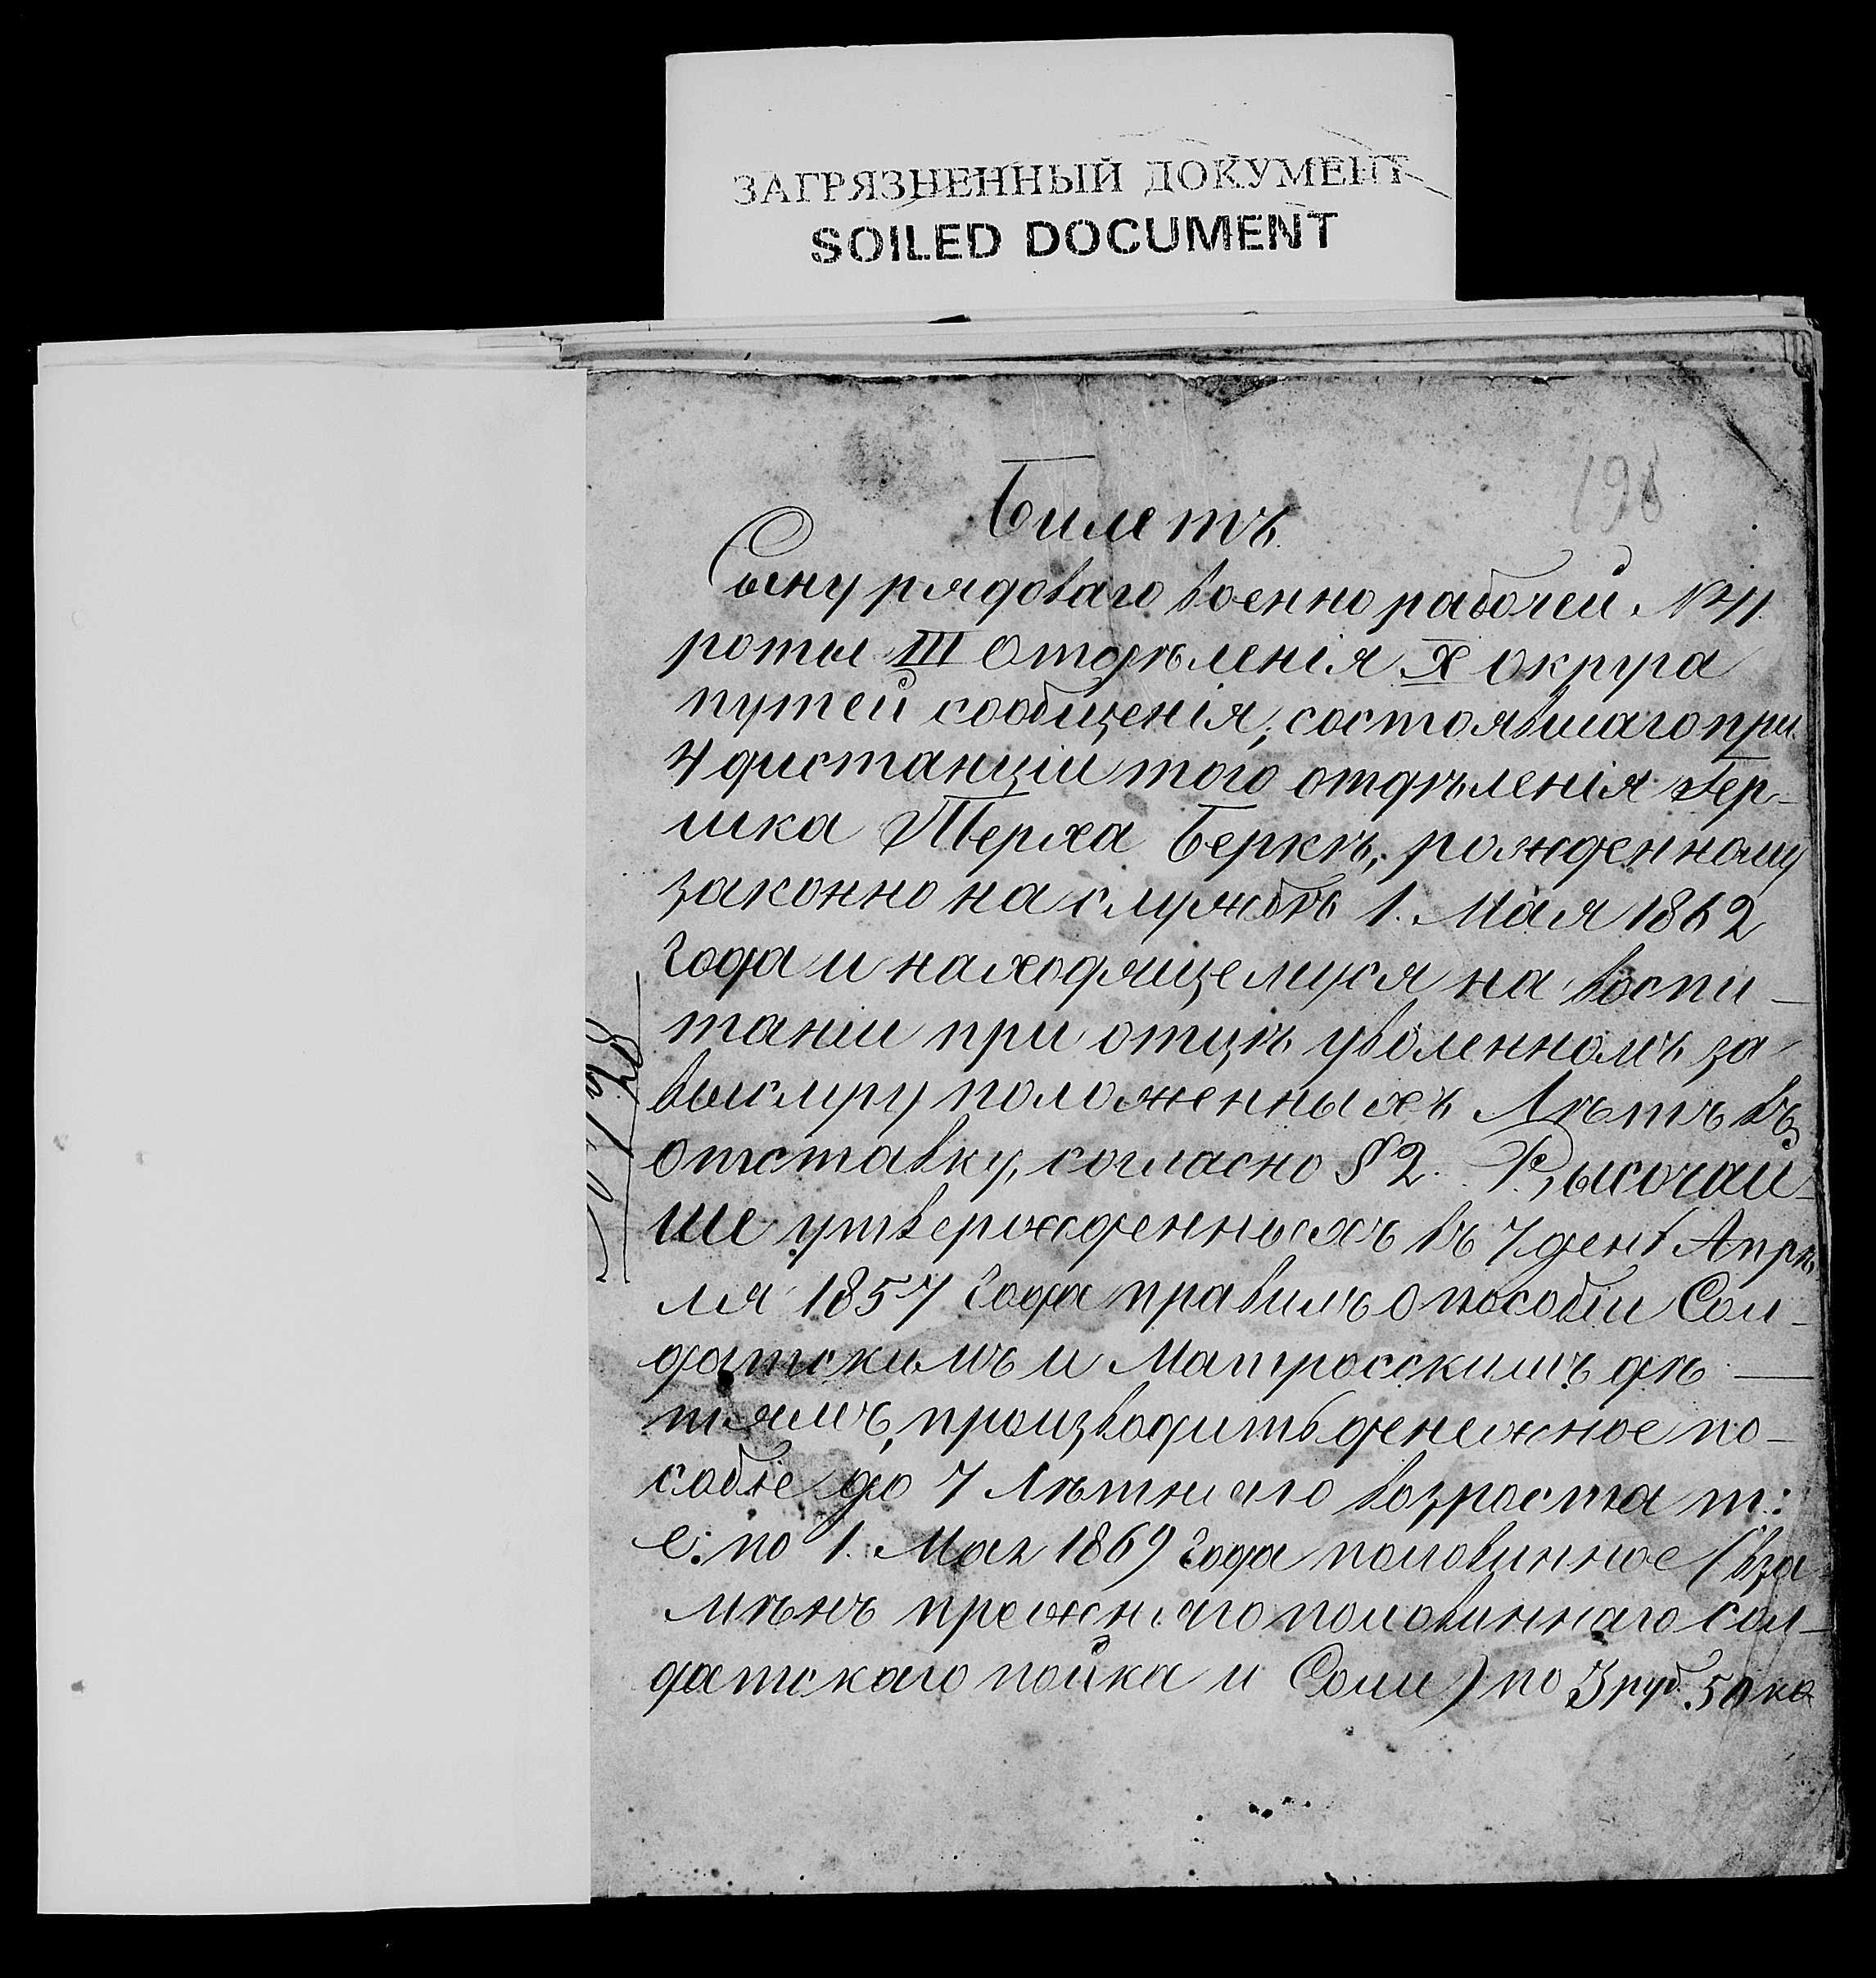 ЗАГРЯЗНЕННЫЙ ДОКУМЕНТ
SOILED DOCUMENT
198
Билетъ
Сыну рядоваго военно рабочей №
роты III Отдѣленія X округа
путей сообщенія, состоявшаго при
4 дистанціи того отдѣленія Гер-
шка Терха Беркѣ, рожденному
законно на службѣ 1. Мая 1862
Года и находящемуся на воспи-
таніи при отцѣ уволенномъ за
выслугу положенныхъ Лѣтъ въ
отставку, согласно § 2. Высочай-
ше утвержденныхъ въ 7 день Апрѣ
ля 1857 Года правилъ о пособіи Сол-
датскимъ и Матросскимъ дѣ-
тямъ, производить денежное по-
собіе до 7 Лѣтняго возроста т:
е: по 1. Мая 1869 Года половинное (вза-
мѣнъ прежняго половиннаго сол-
датскаго пойка и Соли) по 3 руб. 50 ко